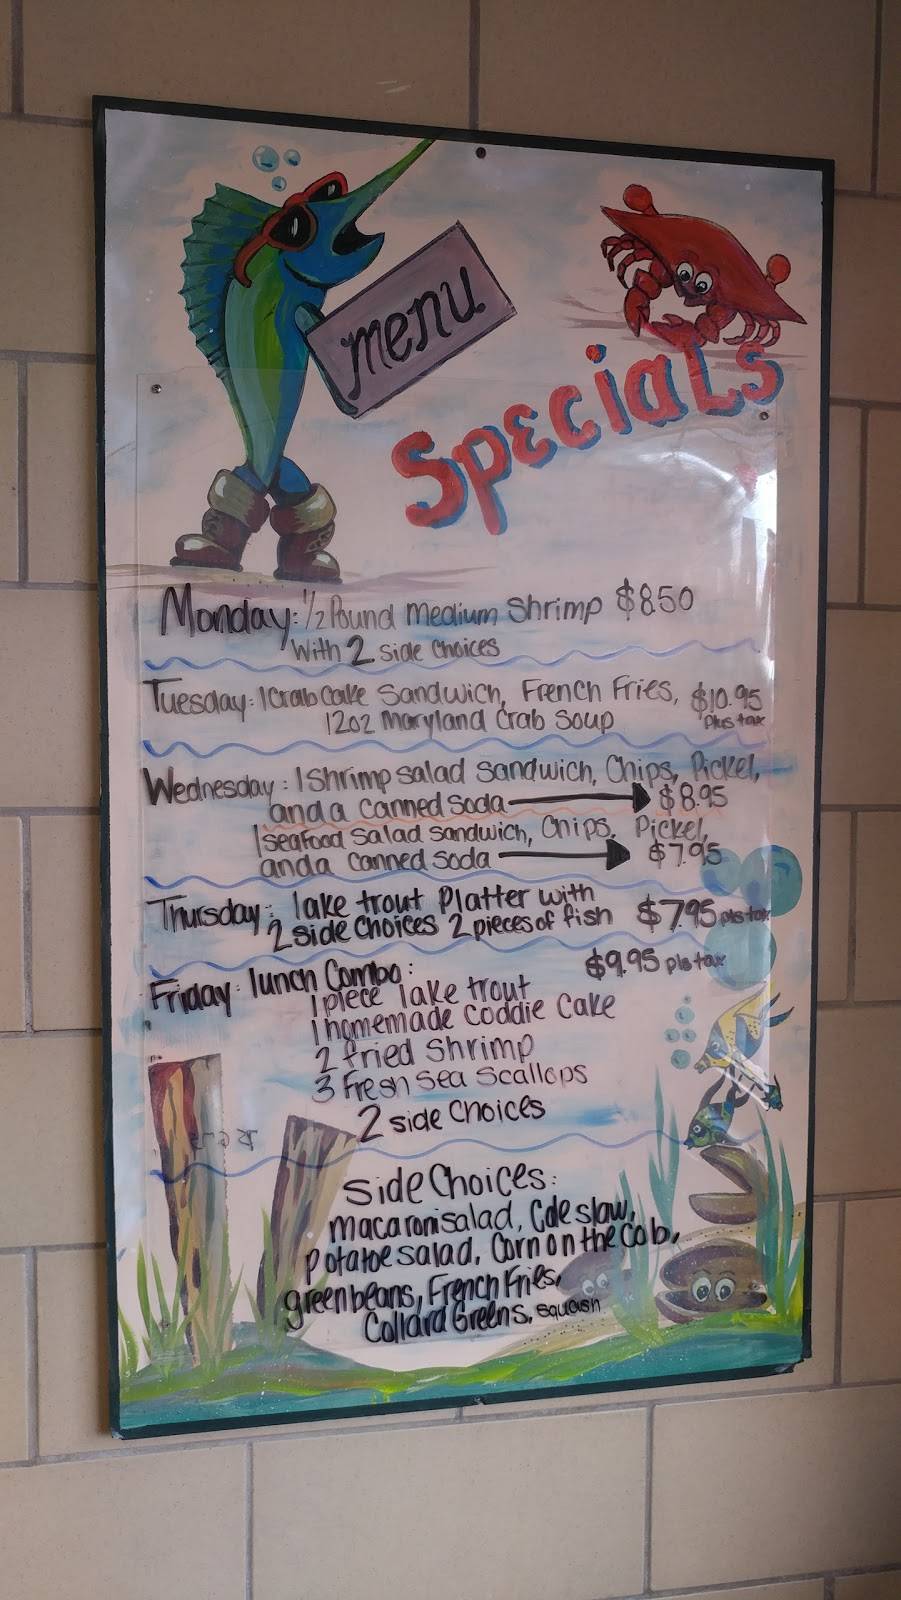 menu
Specials
Monday: 1/2 Pound medium Shrimp $8.50
With 2 side choices
Tuesday: 1 Crab Cake Sandwich, French Fries, $10.95
12oz Maryland Crab Soup plus tax
Wednesday: 1 shrimp salad sandwich, Chips, Pickel,
and a canned soda $8.95
1 seafood salad sandwich, Chips, Pickel,
and a canned soda $7.95
Thursday: lake trout Platter with
2 side choices 2 pieces of fish $7.95 pls tax
Friday: lunch Combo: $9.95 pls tax
1 piece lake trout
1 homemade coddie cake
2 fried shrimp
3 Fresh Sea Scallops
2 side choices
Side Choices:
macaroni salad, Cole slaw,
potatoe salad, Corn on the cob,
green beans, French Fries,
Collard Greens, squash